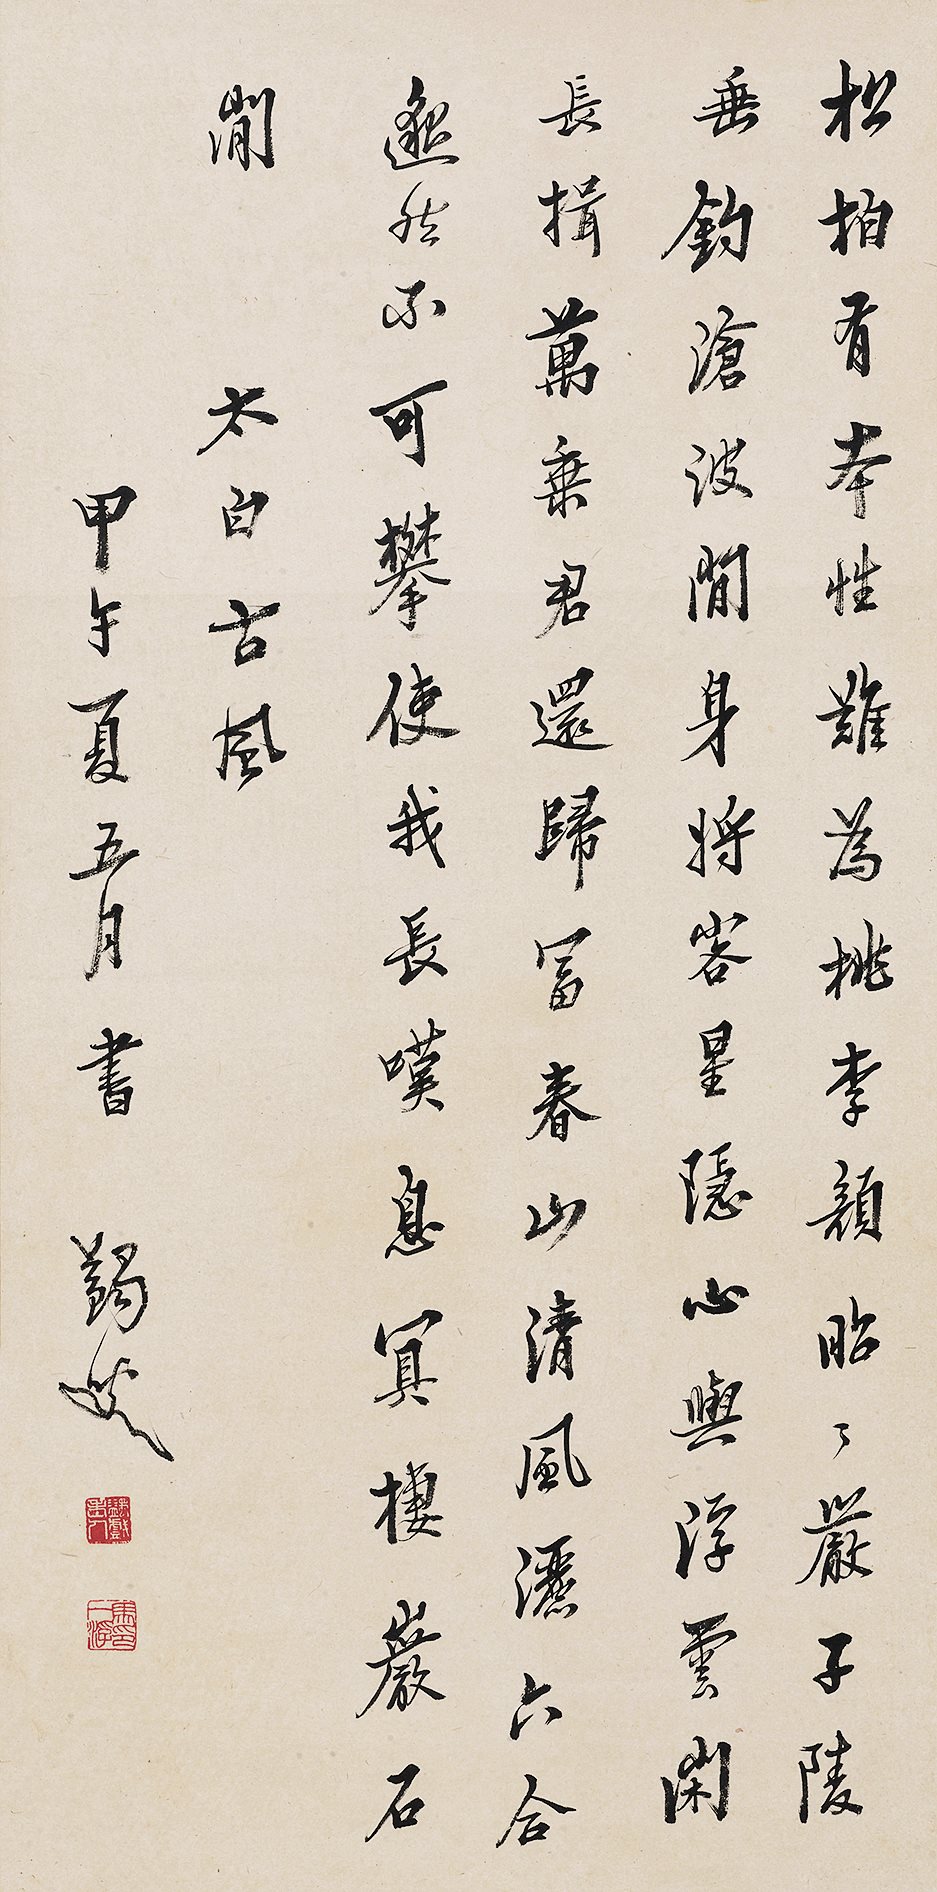 松柏有本性難為桃李顏昭々嚴子陵
垂釣滄波閒身將客星隱心與浮雲閑
長揖萬乘君還歸冨春山清風灑六合
邈然不可攀使我長嘆息冥棲巖石
閒 太白古風
甲午夏五月書 蠲叟
蠲戲老人